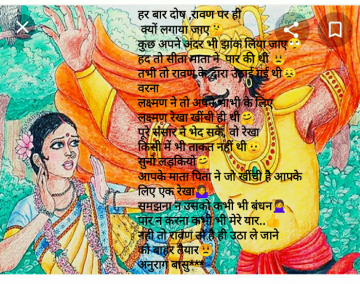 हर बार दोष ,रावण पर ही
क्यों लगाया जाए
कुछ अपने अंदर भी झांक लिया जाए🙄
हद तो सीता माता ने पार की थी
तभी तो रावण के द्वारा उठाई गई थी
वरना
लक्ष्मण ने तो अपने भाभी के लिए
लक्ष्मण रेखा खींची ही थी
पूरे संसार ने भेद सके, वो रेखा
किसी में भी ताकत नहीं थी
सुनो लड़कियो
आपके माता पिता ने जो खींची है आपके
लिए एक रेखा
समझना न उसको कभी भी बंधन
पार न करना कभी भी मेरे यार..
नही तो रावण तो है ही उठा ले जाने
की बाहर तैयार
अनुराग बासु***